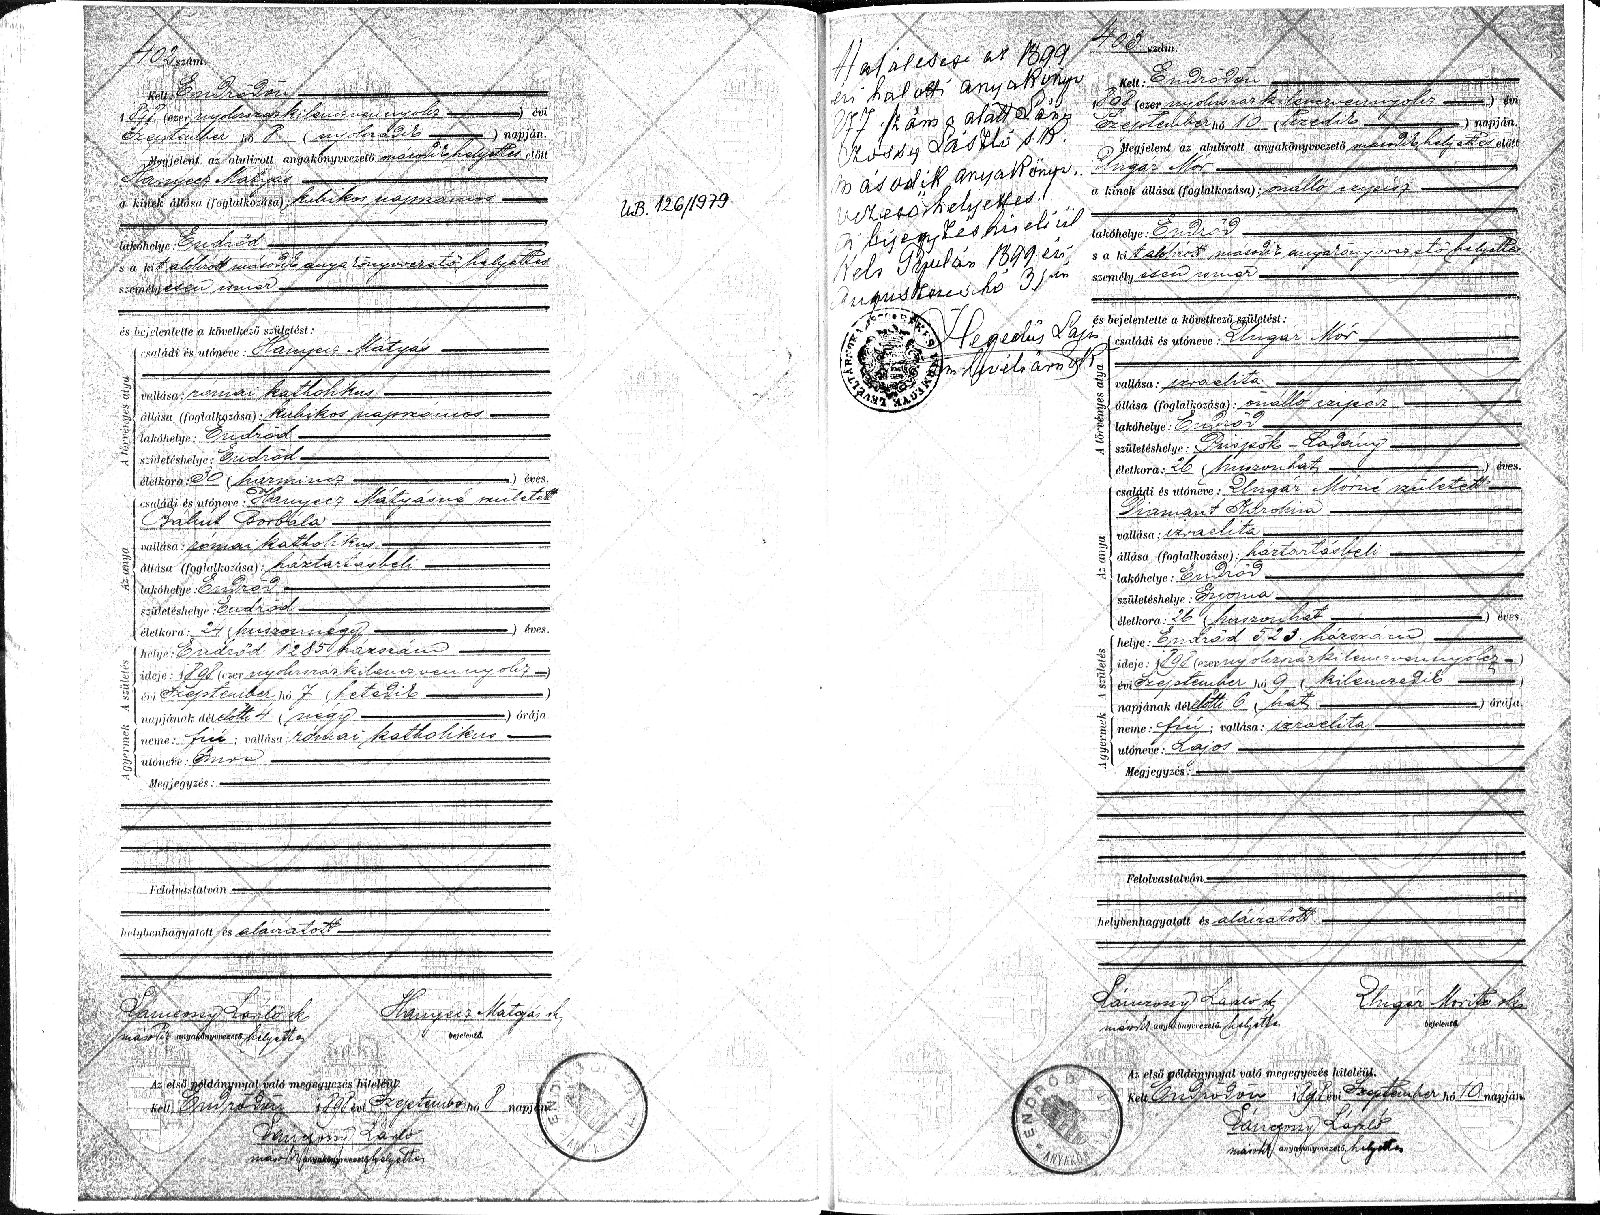 402 szám.
Kelt: Endrődön
1898 (ezer nyolczszázkilenczvennyolcz) évi
Szeptember hó 8 (nyolczadik) napján.
Megjelent az alulirott anyakönyvvezető második helyettes előtt
Hanyecz Mátyás
a kinek állása (foglalkozása): kubikos napszámos
lakóhelye: Endrőd
s a kit alólirott második anyakönyvvezető helyettes
személyesen ismer
és bejelentette a következő születést:
A törvényes atya
családi és utóneve: Hanyecz Mátyás
vallása: római katholikus
állása (foglalkozása): kubikos napszámos
lakóhelye: Endrőd
születéshelye: Endrőd
életkora: 30 (harmincz) éves.
Az anya
családi és utóneve: Hanyecz Mátyásné született
Bálint Borbála
vallása: római katholikus
állása (foglalkozása): háztartásbeli
lakóhelye: Endrőd
születéshelye: Endrőd
életkora: 24 (huszonnégy) éves.
A születés
helye: Endrőd 1285 házszám
ideje: 1898 (ezer nyolczszázkilenczvennyolcz)
évi Szeptember hó 7 (hetedik)
napjának délelőtti 4 (négy) órája
A gyermek
neme: fiú; vallása: római katholikus
utóneve: Imre
Megjegyzés:
Felolvastatván
helybenhagyatott és aláiratott
Lánczony László sk
második anyakönyvvezető helyettes
Hanyecz Mátyás sk
bejelentő.
Az első példánynyal való megegyezés hiteléül:
Kelt Endrődön 1898 évi Szeptember hó 8 napján
Lánczony László
második anyakönyvvezető helyettes
UB. 126/1979
Halálesete az 1899
évi halotti anyakönyv
számа alatt
László sk.
második anyakönyv-
vezető helyettes.
A bejegyzés hiteléül
Kelt Gyulán 1899 évi
Augusztus hó 31 én
Hegedűs Lajos
levéltárnok
BÉKÉS VÁRMEGYE LEVÉLTÁRA
403 szám.
Kelt: Endrődön
1898 (ezer nyolczszázkilenczvennyolcz) évi
Szeptember hó 10 (tizedik) napján.
Megjelent az alulirott anyakönyvvezető második helyettes előtt
Ungár Mór
a kinek állása (foglalkozása): önálló czipész
lakóhelye: Endrőd
s a kit alólirott második anyakönyvvezető helyettes
személyesen ismer
és bejelentette a következő születést:
A törvényes atya
családi és utóneve: Ungár Mór
vallása: izraelita
állása (foglalkozása): önálló czipész
lakóhelye: Endrőd
születéshelye: Püspök-Ladány
életkora: 26 (huszonhat) éves.
Az anya
családi és utóneve: Ungár Mórné született
Diamant
vallása: izraelita
állása (foglalkozása): háztartásbeli
lakóhelye: Endrőd
születéshelye: Gyoma
életkora: 26 (huszonhat) éves
A születés
helye: Endrőd 523 házszám
ideje: 1898 (ezer nyolczszázkilenczvennyolcz)
évi Szeptember hó 9 (kilenczedik)
napjának délelőtti 6 (hat) órája.
A gyermek
neme: fiú; vallása: izraelita
utóneve: Lajos
Megjegyzés:
Felolvastatván
helybenhagyatott és aláiratott
Lánczony László sk
második anyakönyvvezető helyettes
Ungár Móritz sk
bejelentő.
Az első példánynyal való megegyezés hiteléül.
Kelt Endrődön 1898 évi Szeptember hó 10 napján
Lánczony László
második anyakönyvvezető helyettes
ENDRŐD